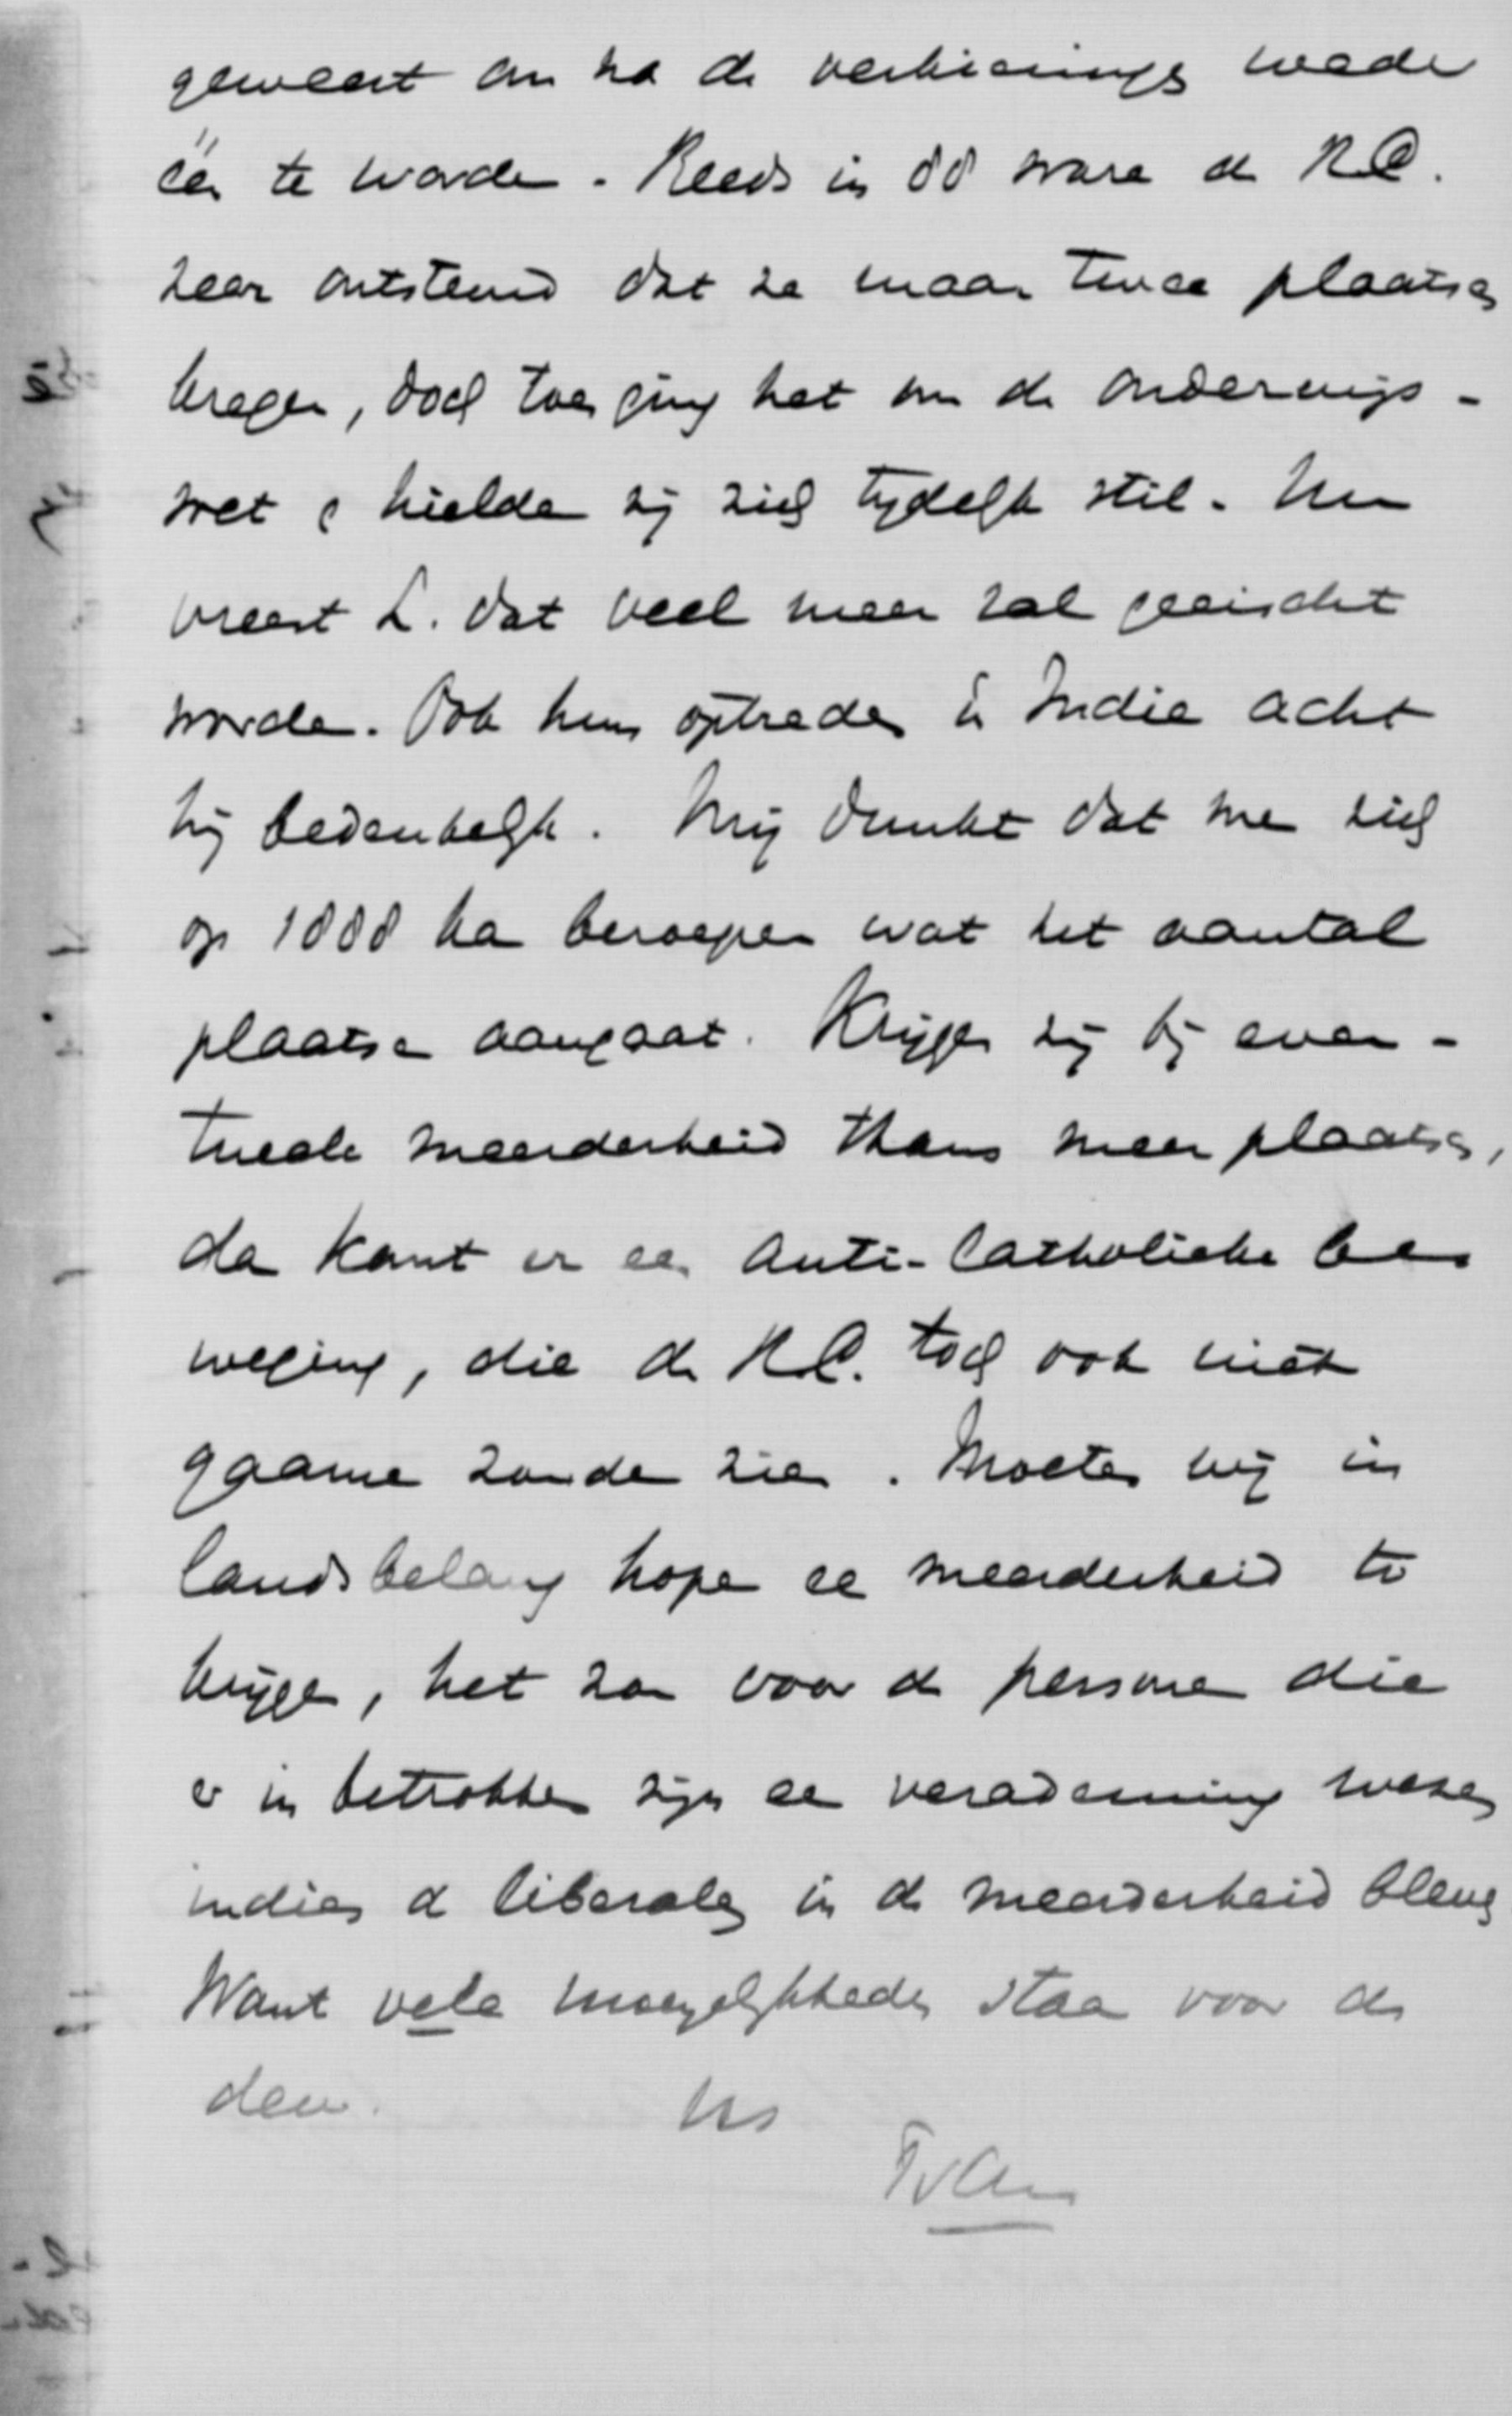 geweest om na de verkiezings weder
één te worden. Reeds in 88 waren de R.C.
zeer ontstemd dat ze maar twee plaatsen
kregen, doch toen ging het om de onderwijs-
wet & hielden zij zich tydelyk stil. Nu
vreest L. dat veel meer zal geeischt
worden. Ook hun optreden in Indie acht
hij bedenkelyk. Mij dunkt dat men zich
op 1888 kan beroepen wat het aantal
plaatsen aangaat. Krijgen zij bij even-
tueele meerderheid thans meer plaatsen,
dan komt er een Anti-Catholieke be-
weging, die de R.C. toch ook niet
gaarne zouden zien. Moeten wij in
landsbelang hopen een meerderheid te
krijgen, het zou voor de personen die
er in betrokken zijn een verademing wezen
indien de liberalen in de meerderheid bleven
Want vele moeyelykheden staan voor de
deur. tts
TvAn